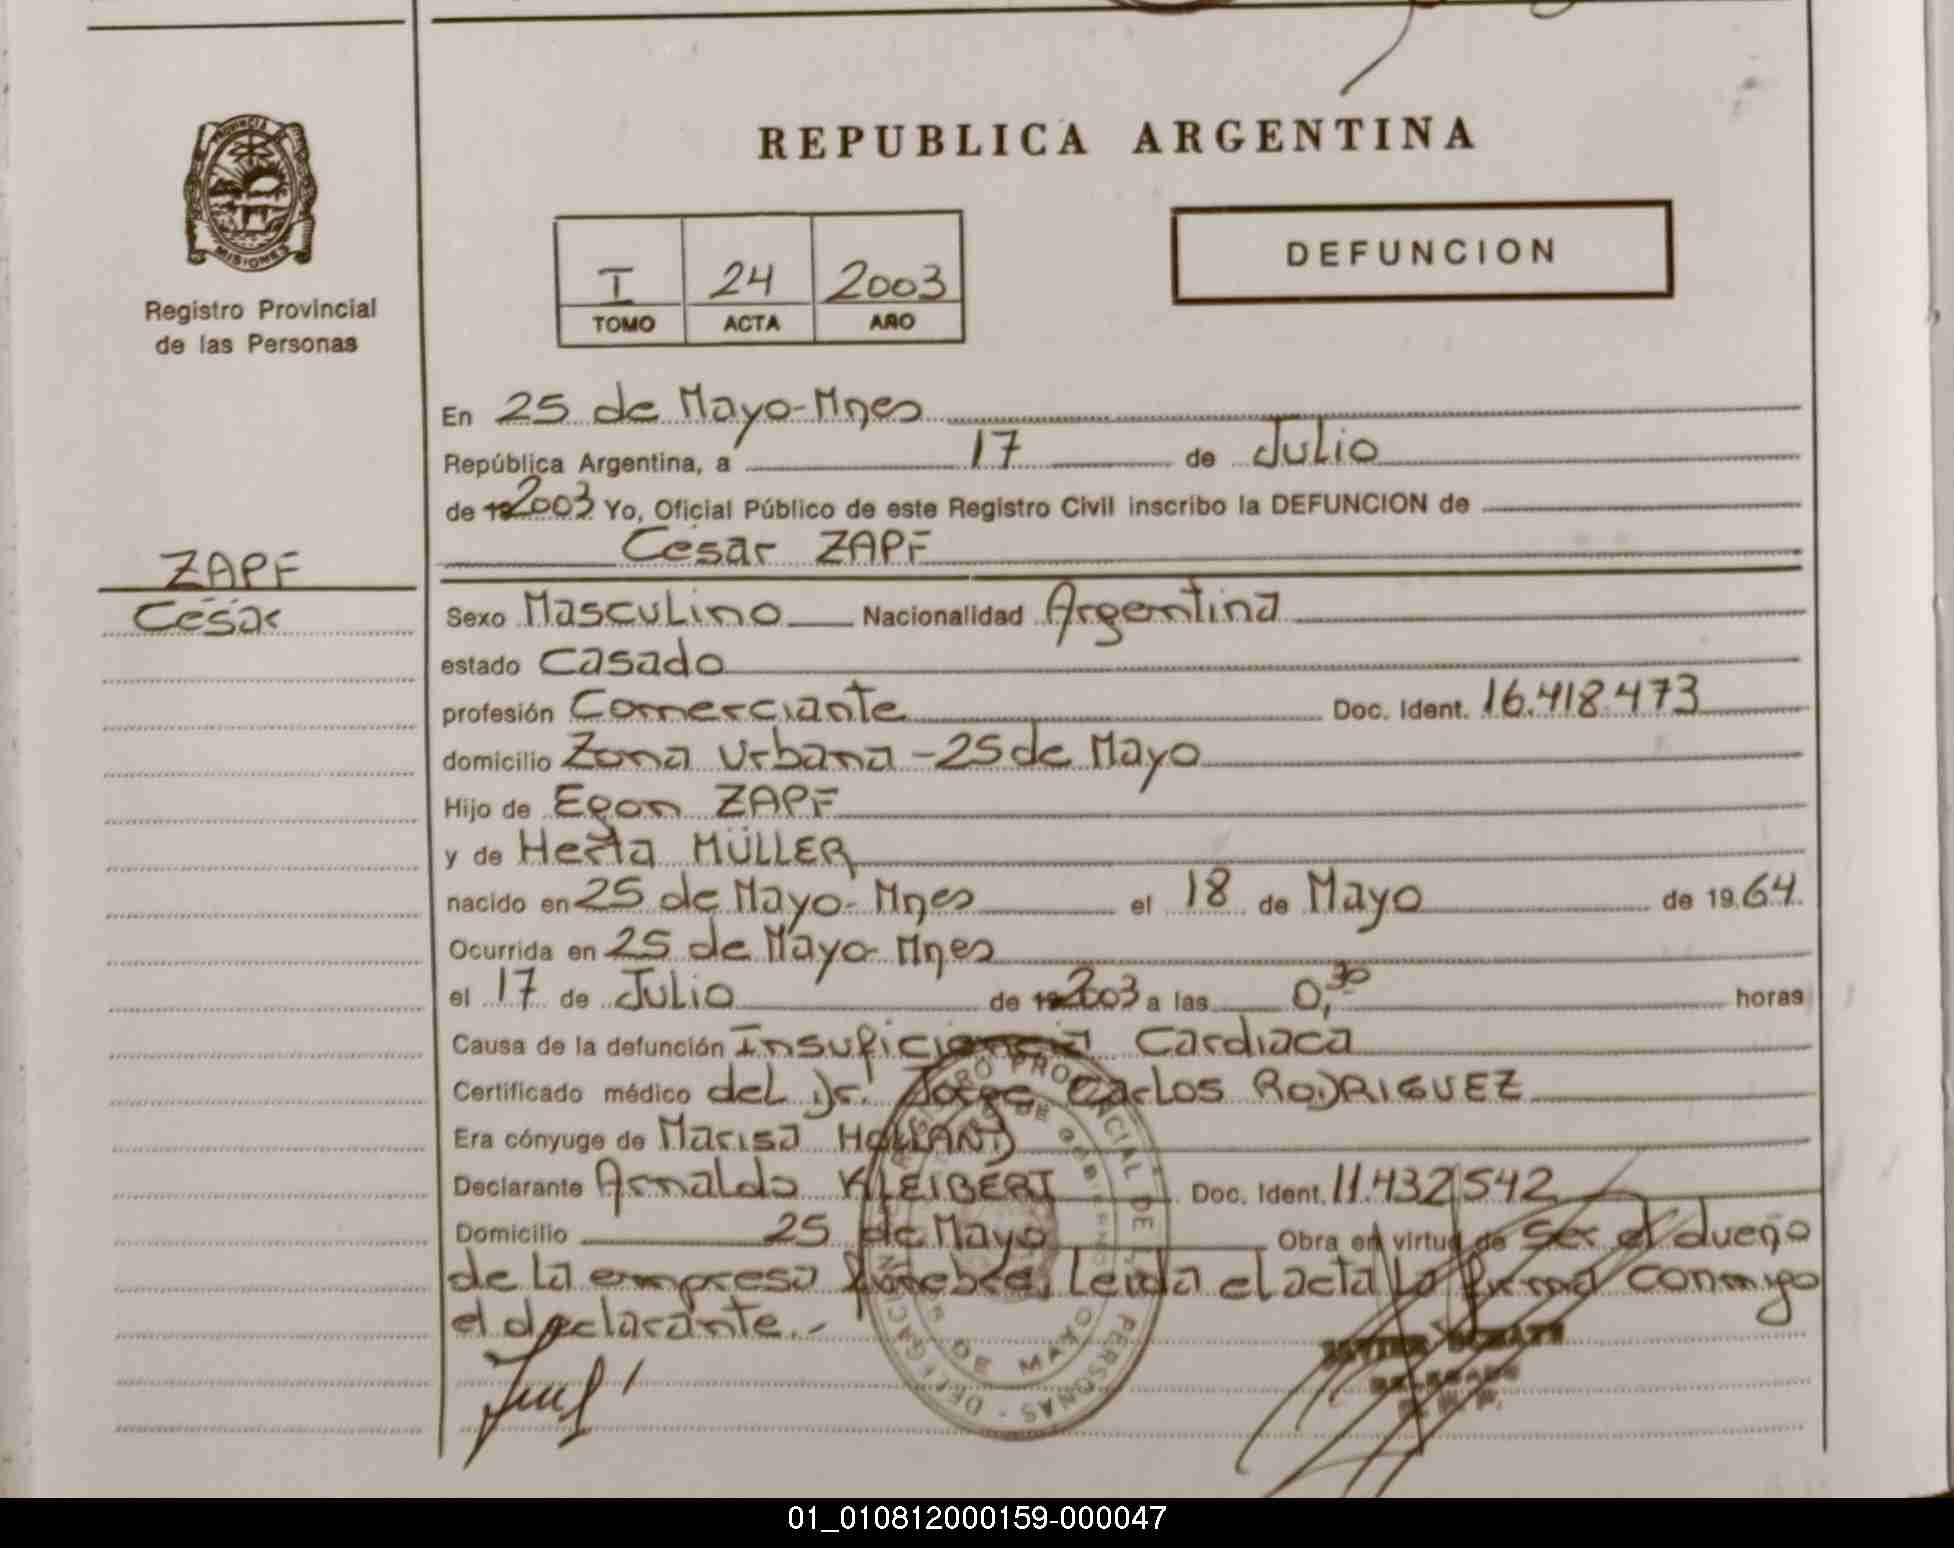 PROVINCIA
MISIONES
Registro Provincial
de las Personas
REPUBLICA ARGENTINA
I 24 2003
TOMO ACTA AÑO
DEFUNCION
En 25 de Mayo-Mnes
República Argentina, a 17 de Julio
de 19 2003 Yo, Oficial Público de este Registro Civil inscribo la DEFUNCION de
César ZAPF
ZAPF
César
Sexo Masculino Nacionalidad Argentina
estado Casado
profesión Comerciante Doc. Ident. 16.418.473
domicilio Zona Urbana - 25 de Mayo
Hijo de Egon ZAPF
y de Herta MÜLLER
nacido en 25 de Mayo- Mnes el 18 de Mayo de 19 64.
Ocurrida en 25 de Mayo- Mnes
el 17 de Julio de 19 2003 a las 0,30 horas
Causa de la defunción Insuficiencia Cardiaca
Certificado médico del Dr. Jorge Carlos RODRIGUEZ
Era cónyuge de Marisa HOLLAND
Declarante Arnaldo KLEIBERT Doc. Ident. 11.432.542
Domicilio 25 de Mayo Obra en virtud de ser el dueño
de la empresa fúnebre, leida el acta la firma conmigo
el declarante.-
01_010812000159-000047